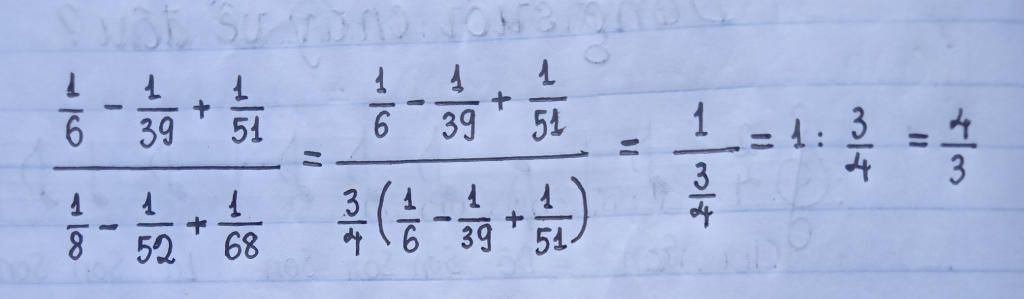 \frac{\frac{1}{6} - \frac{1}{39} + \frac{1}{51}}{\frac{1}{8} - \frac{1}{52} + \frac{1}{68}} = \frac{\frac{1}{6} - \frac{1}{39} + \frac{1}{51}}{\frac{3}{4}\left(\frac{1}{6} - \frac{1}{39} + \frac{1}{51}\right)} = \frac{1}{\frac{3}{4}} = 1 : \frac{3}{4} = \frac{4}{3}